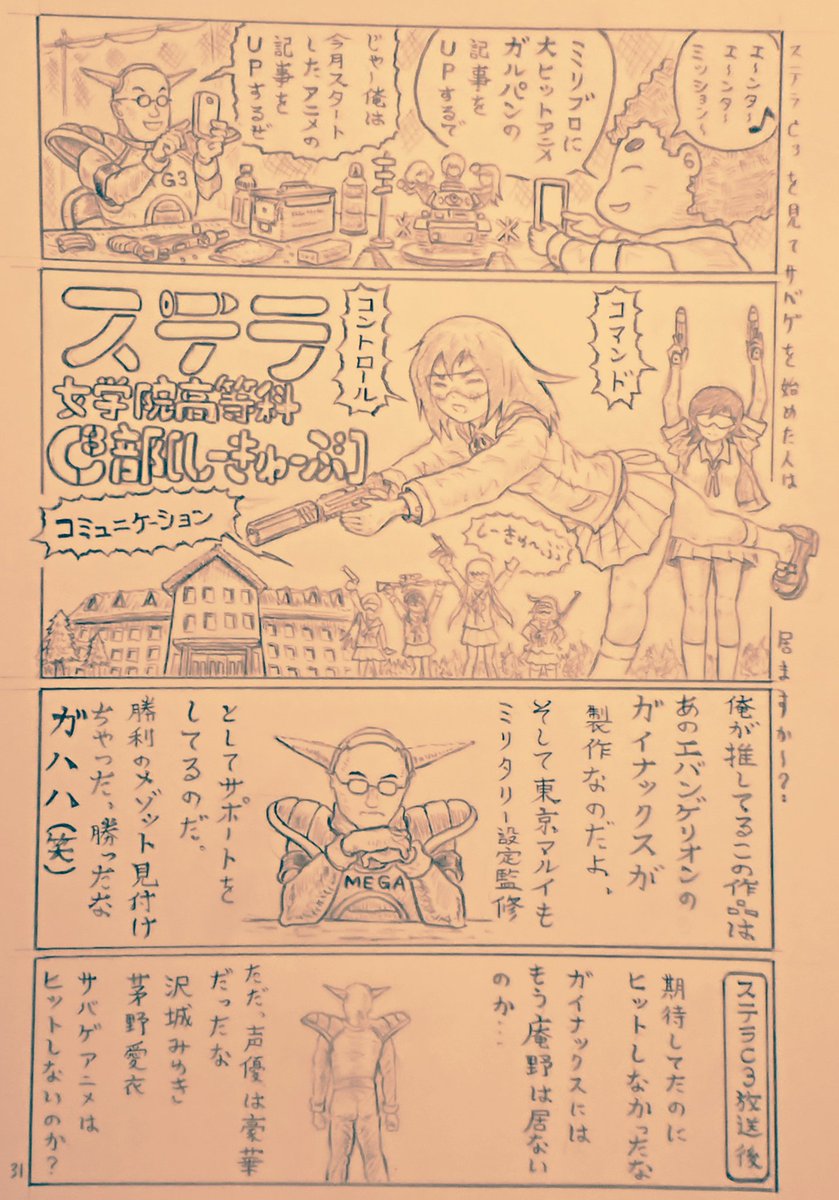 ステラC3を見てサバゲを始めた人は
居ますか〜?
エ〜ンタ〜♪
エ〜ンタ〜
ミッション〜
ミリブロに
大ヒットアニメ
ガルパンの
記事を
UPするで
じゃ〜俺は
今月スタート
したアニメの
記事を
UPするぜ
G3
コマンド
コントロール
ステラ
女学院高等科
C3部[しーきゅーぶ]
コミュニケーション
しーきゅ〜ぶ
俺が推してるこの作品は
あのエバンゲリオンの
ガイナックスが
製作なのだよ、
そして東京マルイも
ミリタリー設定監修
としてサポートを
してるのだ。
勝利のメゾット見付け
ちゃった、勝ったな
ガハハ(笑)
MEGA
ステラC3放送後
期待してたのに
ヒットしなかったな
ガイナックスには
もう庵野は居ない
のか…
ただっ声優は豪華
だったな
沢城みゆき
茅野愛衣
サバゲアニメは
ヒットしないのか?
31